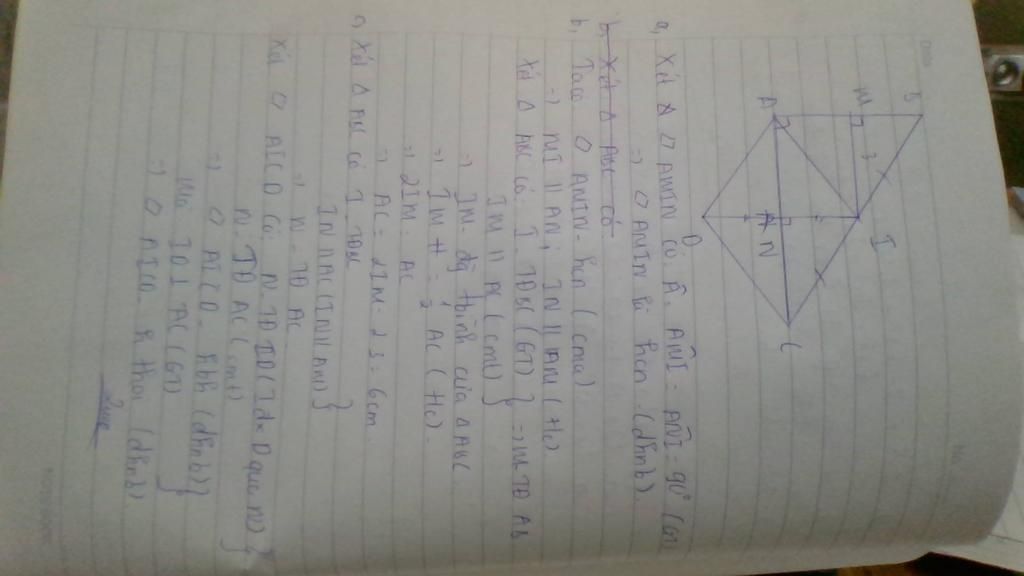 B
M
3
I
A
N
C
D
a, Xét □ AMIN có Â = AM̂I = AN̂I = 90° (GT)
=) □ AMIN là hcn (dhnb).
b, Xét Δ ABC có
b, Ta có □ AMIN = hcn (cma)
=) MI // AN ; IN // AM (t/c)
Xét Δ ABC có: I TĐBC (GT) } =) M TĐ AB
IM // AC (cmt) }
=) IM = đg tbình của Δ ABC
=) IM = 1/2 AC (t/c).
=) 2IM = AC
AC = 2IM = 2.3 = 6cm.
c, Xét Δ ABC có I TĐBC }
IN // AC (IN // AM) }
=) N = TĐ AC
Xét □ AICD có: N = TĐ ID (I đx D qua N) }
N = TĐ AC (cmt) }
=) □ AICD = hbh (dhnb) }
Mà ID ⊥ AC (GT) }
=) □ AICD = h thoi (dhnb)